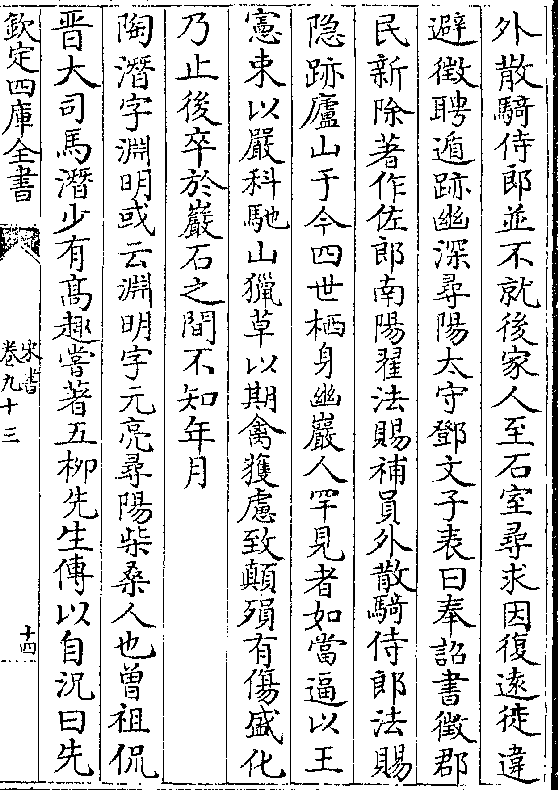 外散騎侍郎並不就後家人至石室尋求因復逺徙違
避徵聘遁跡幽深尋陽太守鄧文子表曰奉詔書徵郡
民新除著作佐郎南陽翟法賜補員外散騎侍郎法賜
隠跡廬山于今四世栖身幽巖人罕見者如當逼以王
憲束以嚴科馳山獵草以期禽獲慮致顛殞有傷盛化
乃止後卒於巖石之間不知年月
陶潛字淵明或云淵明字元亮尋陽柴桑人也曽祖侃
晉大司馬潛少有髙趣嘗著五柳先生傳以自況曰先
欽定四庫全書
宋書
卷九十三
十四